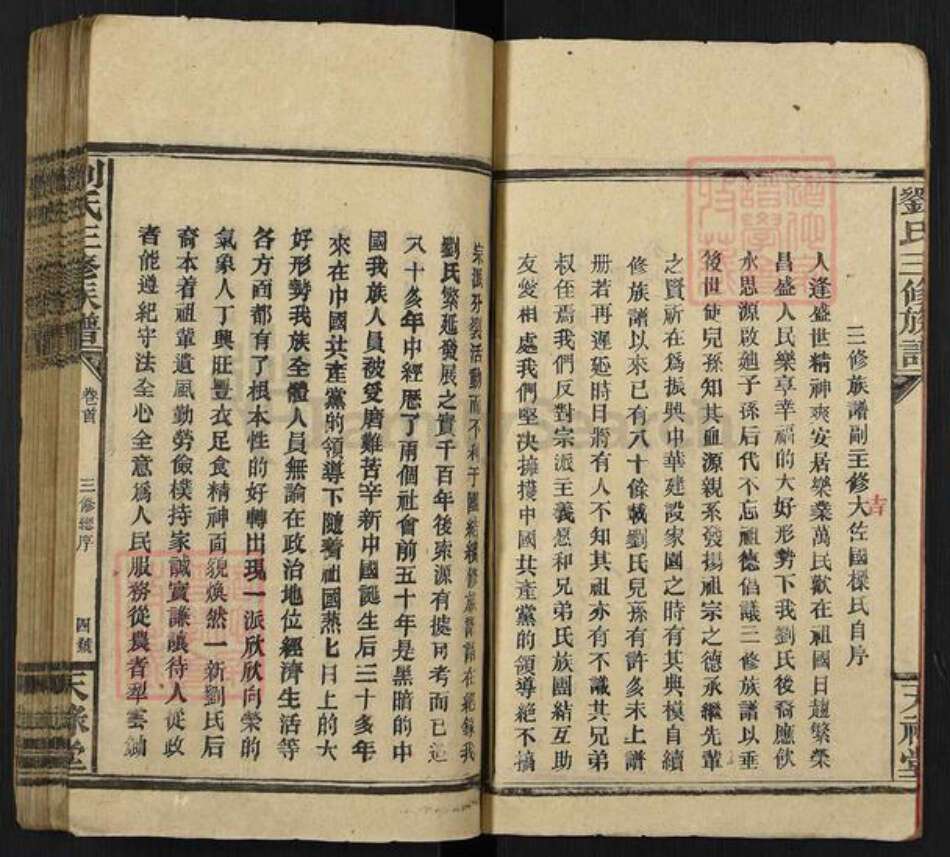 劉氏三修族譜
天祿堂
三修族譜副主修大佐國樑氏自序
吉
人逢盛世精神爽安居樂業萬民歡在祖國日趨繁榮
昌盛人民樂享幸福的大好形勢下我劉氏後裔應飲
水思源啟廸子孫后代不忘祖德倡議三修族譜以垂
後世使兒孫知其血源親系發揚祖宗之德承繼先輩
之賢祈在爲振興中華建設家園之時有其典模自續
修族譜以來已有八十餘載劉氏兒孫有許多未上譜
册若再遲延時日將有人不知其祖亦有不識其兄弟
叔侄焉我們反對宗派主義愿和兄弟氏族團結互助
友愛相處我們堅决擁護中國共產黨的領導絕不搞
宗派分裂活動而不利于團結續修族譜誌在紀錄我
劉氏繁延發展之實千百年後索源有據可考而已這
八十多年中經歷了兩個社會前五十年是黑暗的中
國我族人員被受磨難苦辛新中國誕生后三十多年
來在中國共產黨的領導下隨着祖國蒸七日上的大
好形勢我族全體人員無論在政治地位經濟生活等
各方面都有了根本性的好轉出現一派欣欣向榮的
氣象人丁興旺豐衣足食精神面貌煥然一新劉氏后
裔本着祖輩遺風勤勞儉樸持家誠實謙讓待人從政
者能遵紀守法全心全意爲人民服務從農者犁雲鋤
劉氏三修族譜
卷首
三修總序
四號
天祿堂